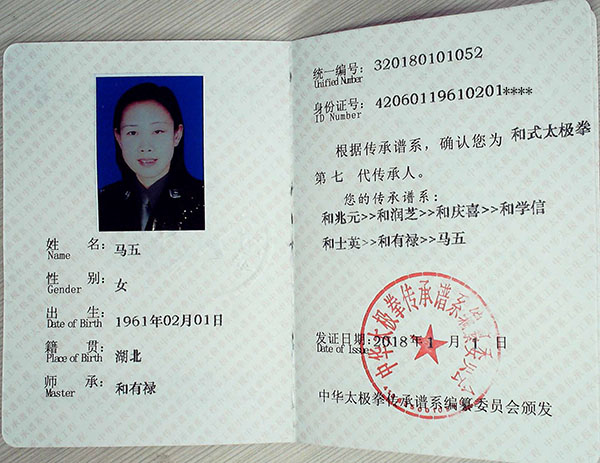 姓 名：马五
Name
性 别：女
Gender
出 生：1961年02月01日
Date of Birth
籍 贯：湖北
Place of Birth
师 承：和有禄
Master
统一编号：320180101052
Unified Number
身份证号：42060119610201****
ID Number
根据传承谱系，确认您为 和式太极拳
第 七 代传承人。
您的传承谱系：
和兆元>>和润芝>>和庆喜>>和学信
和士英>>和有禄>>马五
中华太极拳传承谱系编纂委员会
发证日期：2018年 1 月 1 日
Date of Issue
中华太极拳传承谱系编纂委员会颁发